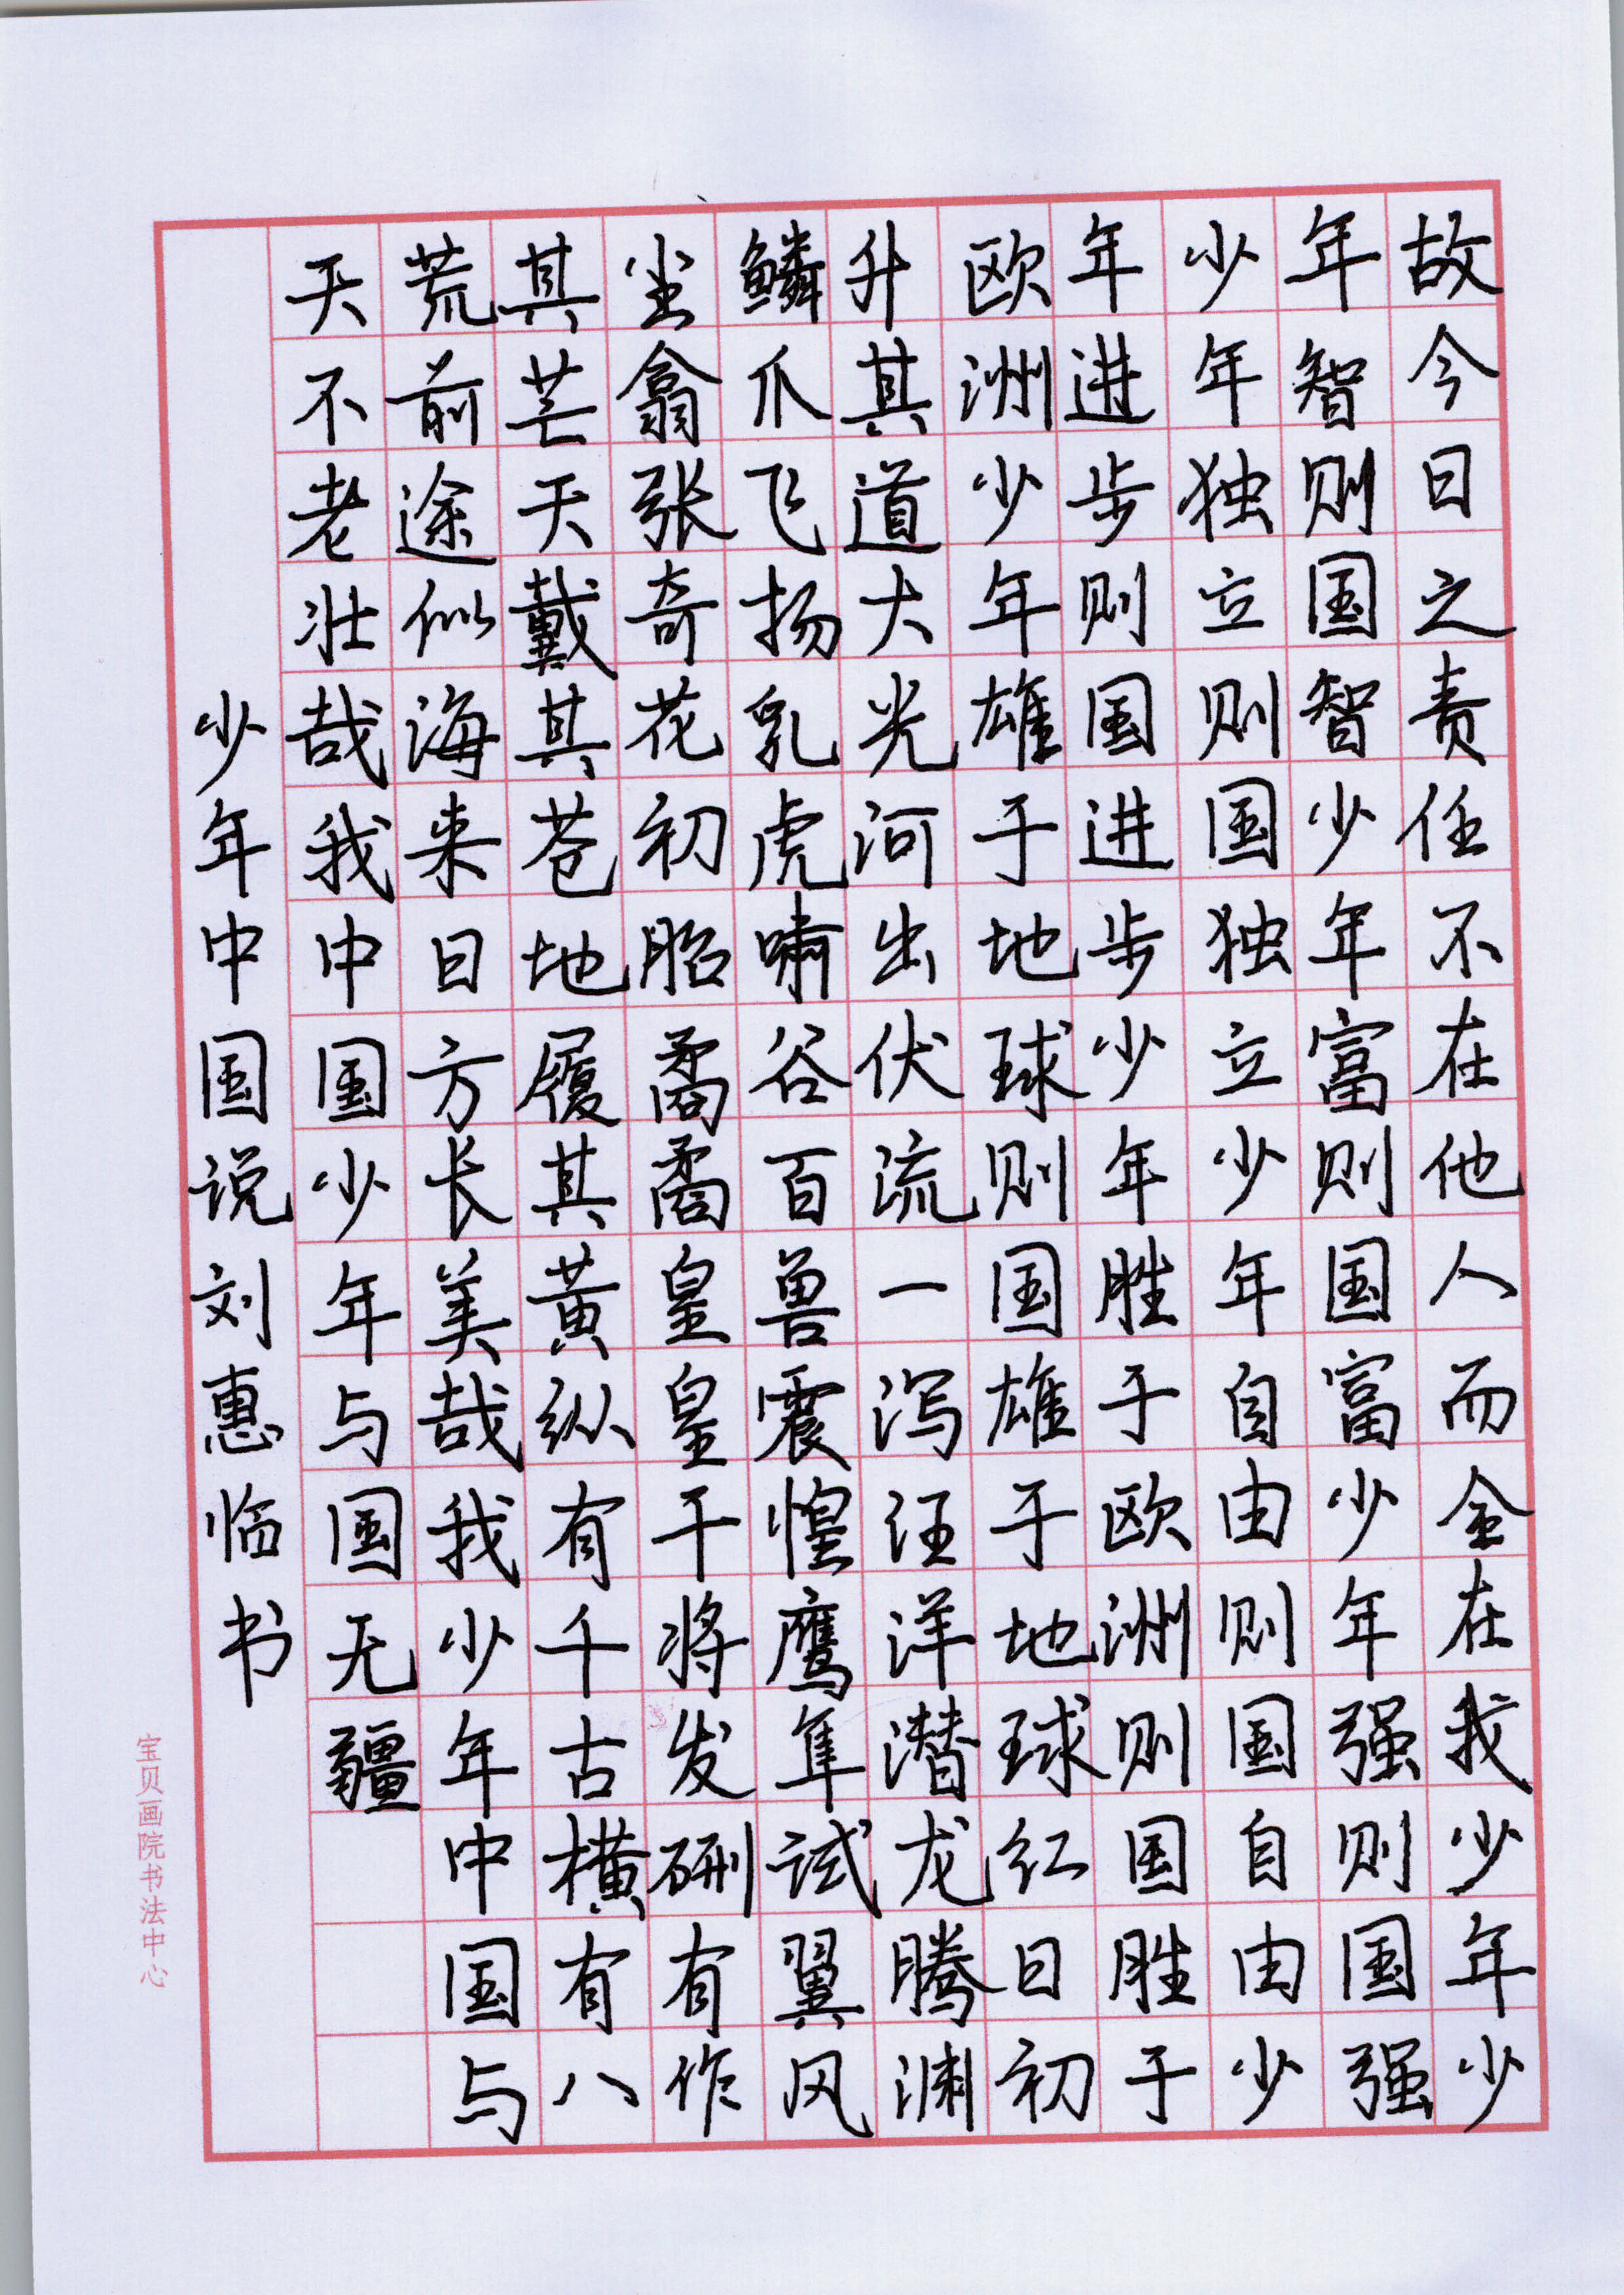 故今日之责任不在他人而全在我少年少
年智则国智少年富则国富少年强则国强
少年独立则国独立少年自由则国自由少
年进步则国进步少年胜于欧洲则国胜于
欧洲少年雄于地球则国雄于地球红日初
升其道大光河出伏流一泻汪洋潜龙腾渊
鳞爪飞扬乳虎啸谷百兽震惶鹰隼试翼风
尘翕张奇花初胎矞矞皇皇干将发硎有作
其芒天戴其苍地履其黄纵有千古横有八
荒前途似海来日方长美哉我少年中国与
天不老壮哉我中国少年与国无疆
少年中国说刘惠临书
宝贝画院书法中心